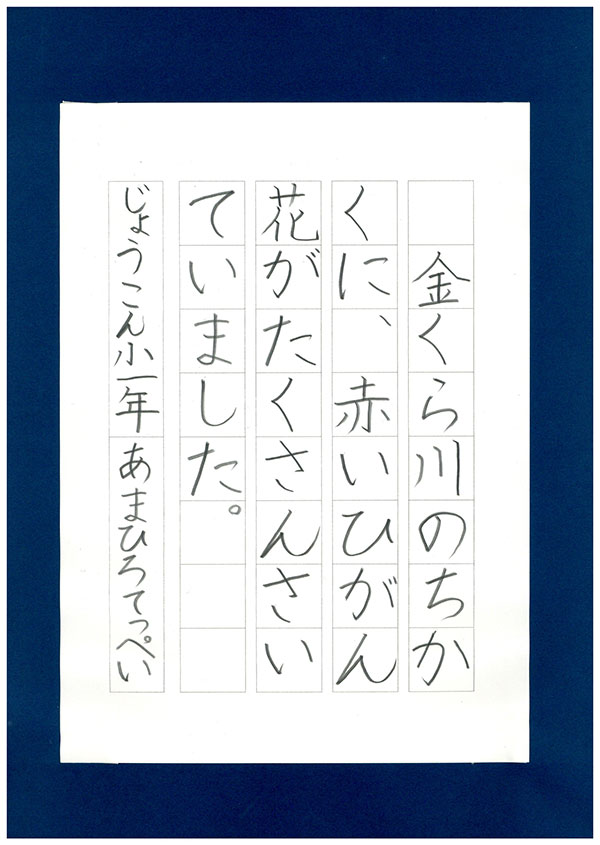 金くら川のちか
くに、赤いひがん
花がたくさんさい
ていました。
じょうこん小一年 あまひろてっぺい